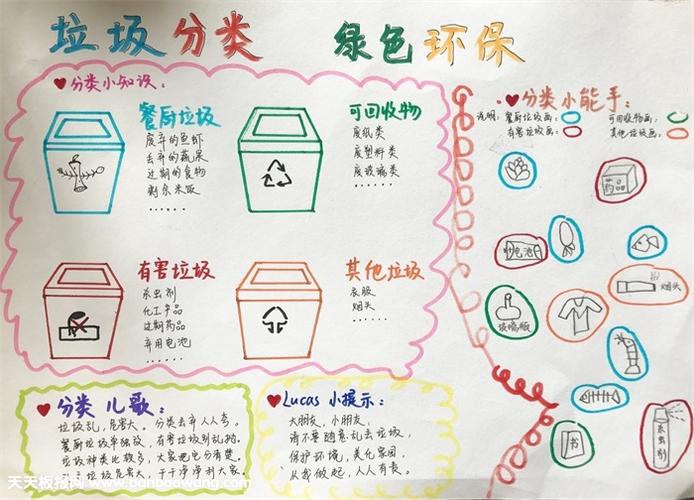 垃圾分类 绿色环保
分类小知识:
餐厨垃圾
废弃的鱼虾
丢弃的蔬果
过期的食物
剩余米饭
......
可回收物
废纸类
废塑料类
废玻璃类
......
有害垃圾
杀虫剂
化工产品
过期药品
弃用电池
......
其他垃圾
衣服
烟头
......
分类小能手:
说明: 餐厨垃圾画: 可回收物画:
有害垃圾画: 其他垃圾画:
药
电池
烟头
玻璃瓶
书
杀虫剂
分类儿歌:
垃圾乱,危害大。分类丢弃人人夸。
大家把它分清楚。
干干净净利大家。
Lucas 小提示:
大朋友,小朋友,
请不要随意乱丢垃圾,
保护环境,美化家园,
从我做起,人人有责。
天天板报网 www.banbaowang.com